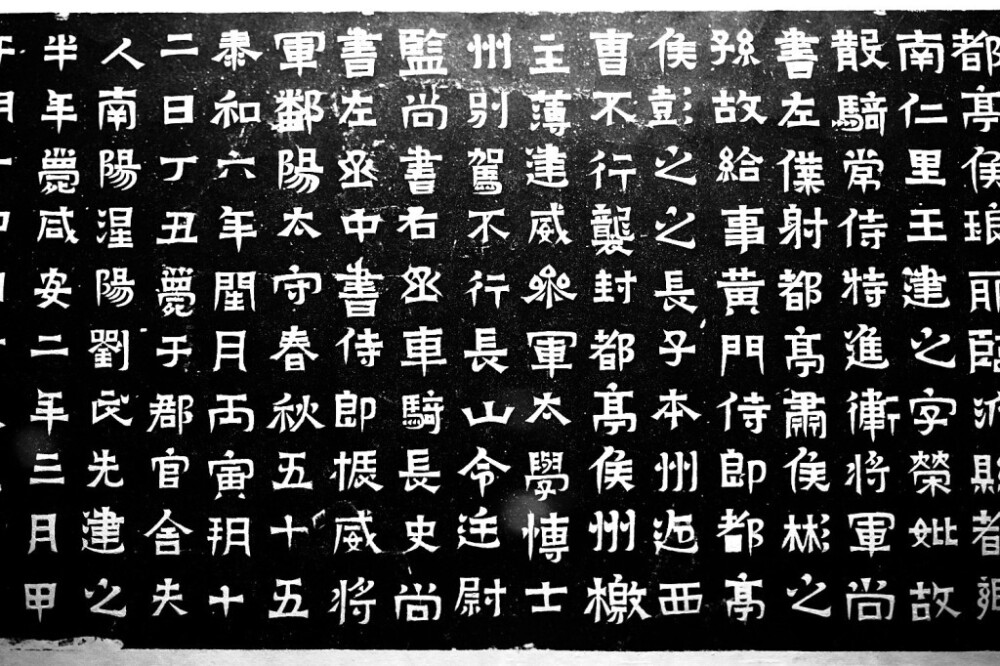 都亭侯琅耶臨沂縣都鄉
南仁里王建之字榮妣故
散騎常侍特進衛將軍尚
書左僕射都亭肅侯彬之
孫故給事黃門侍郎都亭
侯彭之之長子本州迎西
曹不行襲封都亭侯州檄
主薄建威參軍太學博士
州別駕不行長山令廷尉
監尚書右丞車騎長史尚
書左丞中書侍郎振威將
軍鄱陽太守春秋五十五
泰和六年閏月丙寅朔十
二日丁丑薨于郡官舍夫
人南陽涅陽劉氏先建之
半年薨咸安二年三月甲